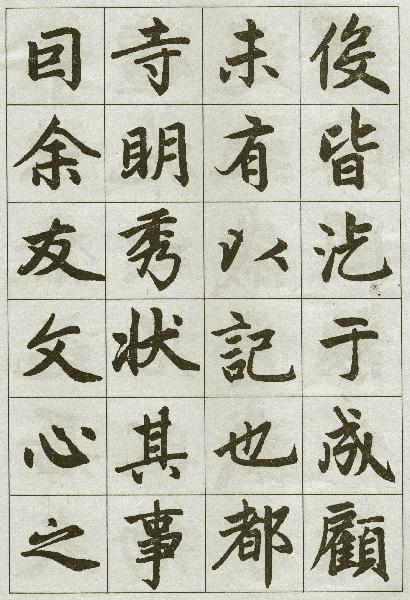 役皆汔于成顧
未有以記也都
寺明秀狀其事
囙余友文心之